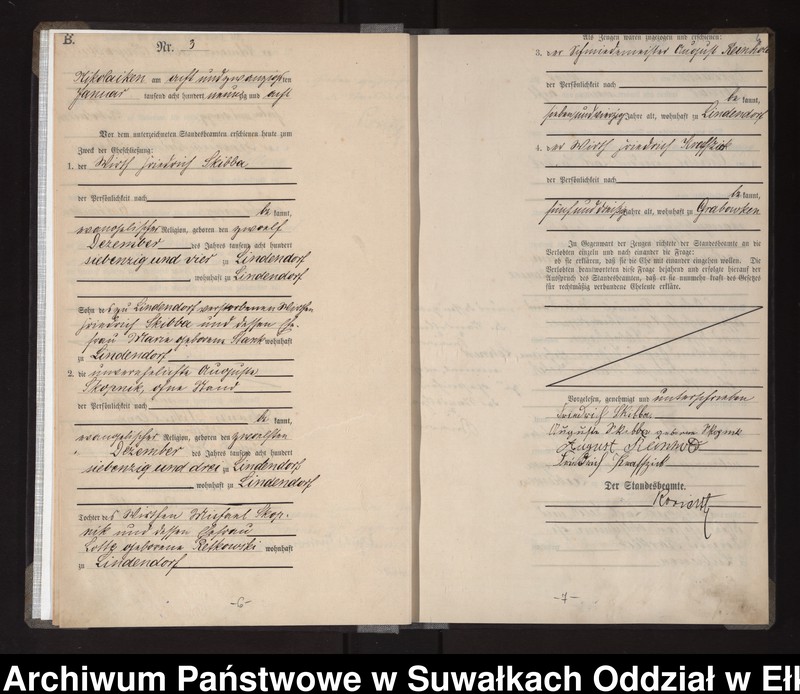 B.
Nr. 3
Nikolaiken am acht und zwanzigsten
Januar tausend acht hundert neunzig und acht
Vor dem unterzeichneten Standesbeamten erschienen heute zum
Zweck der Eheschließung:
1. der Wirth Friedrich Skibba
der Persönlichkeit nach
be kannt,
evangelischer Religion, geboren den zwoelf
Dezember des Jahres tausend acht hundert
siebenzig und vier zu Lindendorf
, wohnhaft zu Lindendorf
Sohn des zu Lindendorf verstorbenen Wirthen
Friedrich Skibba und dessen Ehe-
frau Marie geborene wohnhaft
zu Lindendorf
2. die unverehelichte Auguste
Skopnik, ohne Stand
der Persönlichkeit nach
be kannt,
evangelischer Religion, geboren den zwoelften
Dezember des Jahres tausend acht hundert
siebenzig und drei zu Lindendorf
, wohnhaft zu Lindendorf
Tochter des Wirthen Michael Skop-
nik und dessen Ehefrau
geborene Retkowski wohnhaft
zu Lindendorf
-6-
Als Zeugen waren zugezogen und erschienen:
3. der Schmiedemeister August Reinhold
der Persönlichkeit nach
be kannt,
siebenundvierzig Jahre alt, wohnhaft zu Lindendorf
4. der Wirth Friedrich
der Persönlichkeit nach
be kannt,
fünfunddreißig Jahre alt, wohnhaft zu Grabowken
In Gegenwart der Zeugen richtete der Standesbeamte an die
Verlobten einzeln und nach einander die Frage:
ob sie erklären, daß sie die Ehe mit einander eingehen wollen. Die
Verlobten beantworteten diese Frage bejahend und erfolgte hierauf der
Ausspruch des Standesbeamten, daß er sie nunmehr kraft des Gesetzes
für rechtmäßig verbundene Eheleute erkläre.
Vorgelesen, genehmigt und unterschrieben
Friedrich Skibba
Auguste Skibba geborene Skopnik
August Reinhold
Friedrich
Der Standesbeamte.
-7-
Archiwum Państwowe w Suwałkach Oddział w Eł